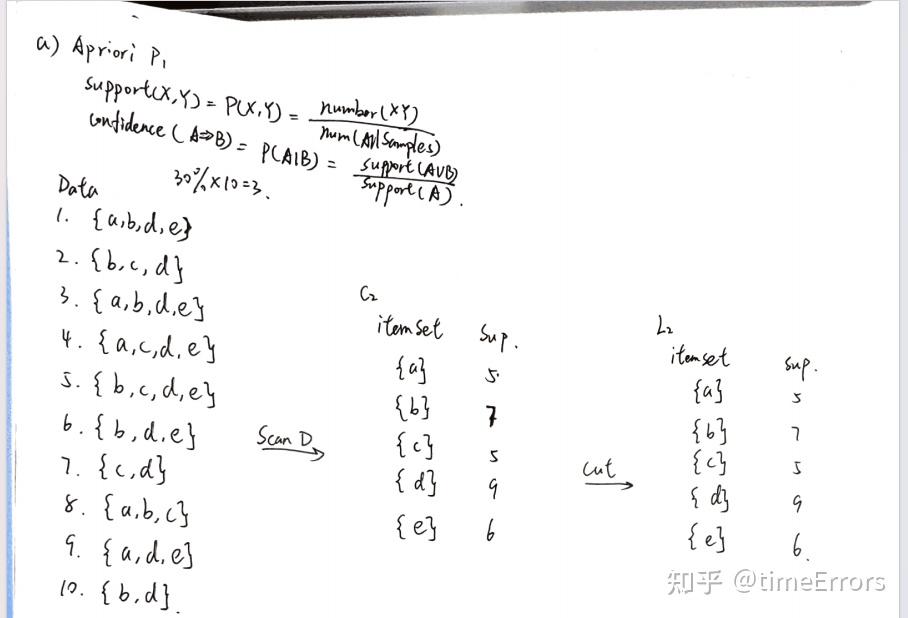 a) Apriori P₁
support(X,Y) = P(X,Y) = number(XY) / num(All Samples)
confidence (A⇒B) = P(A|B) = support(A∪B) / support(A) .
30%×10=3.
Data
1. {a,b,d,e}
2. {b,c,d}
3. {a,b,d,e}
4. {a,c,d,e}
5. {b,c,d,e}
6. {b,d,e}
7. {c,d}
8. {a,b,c}
9. {a,d,e}
10. {b,d}.
Scan D
C₂
itemset sup.
{a} 5
{b} 7
{c} 5
{d} 9
{e} 6
cut
L₂
itemset sup.
{a} 5
{b} 7
{c} 5
{d} 9
{e} 6.
知乎 @timeErrors